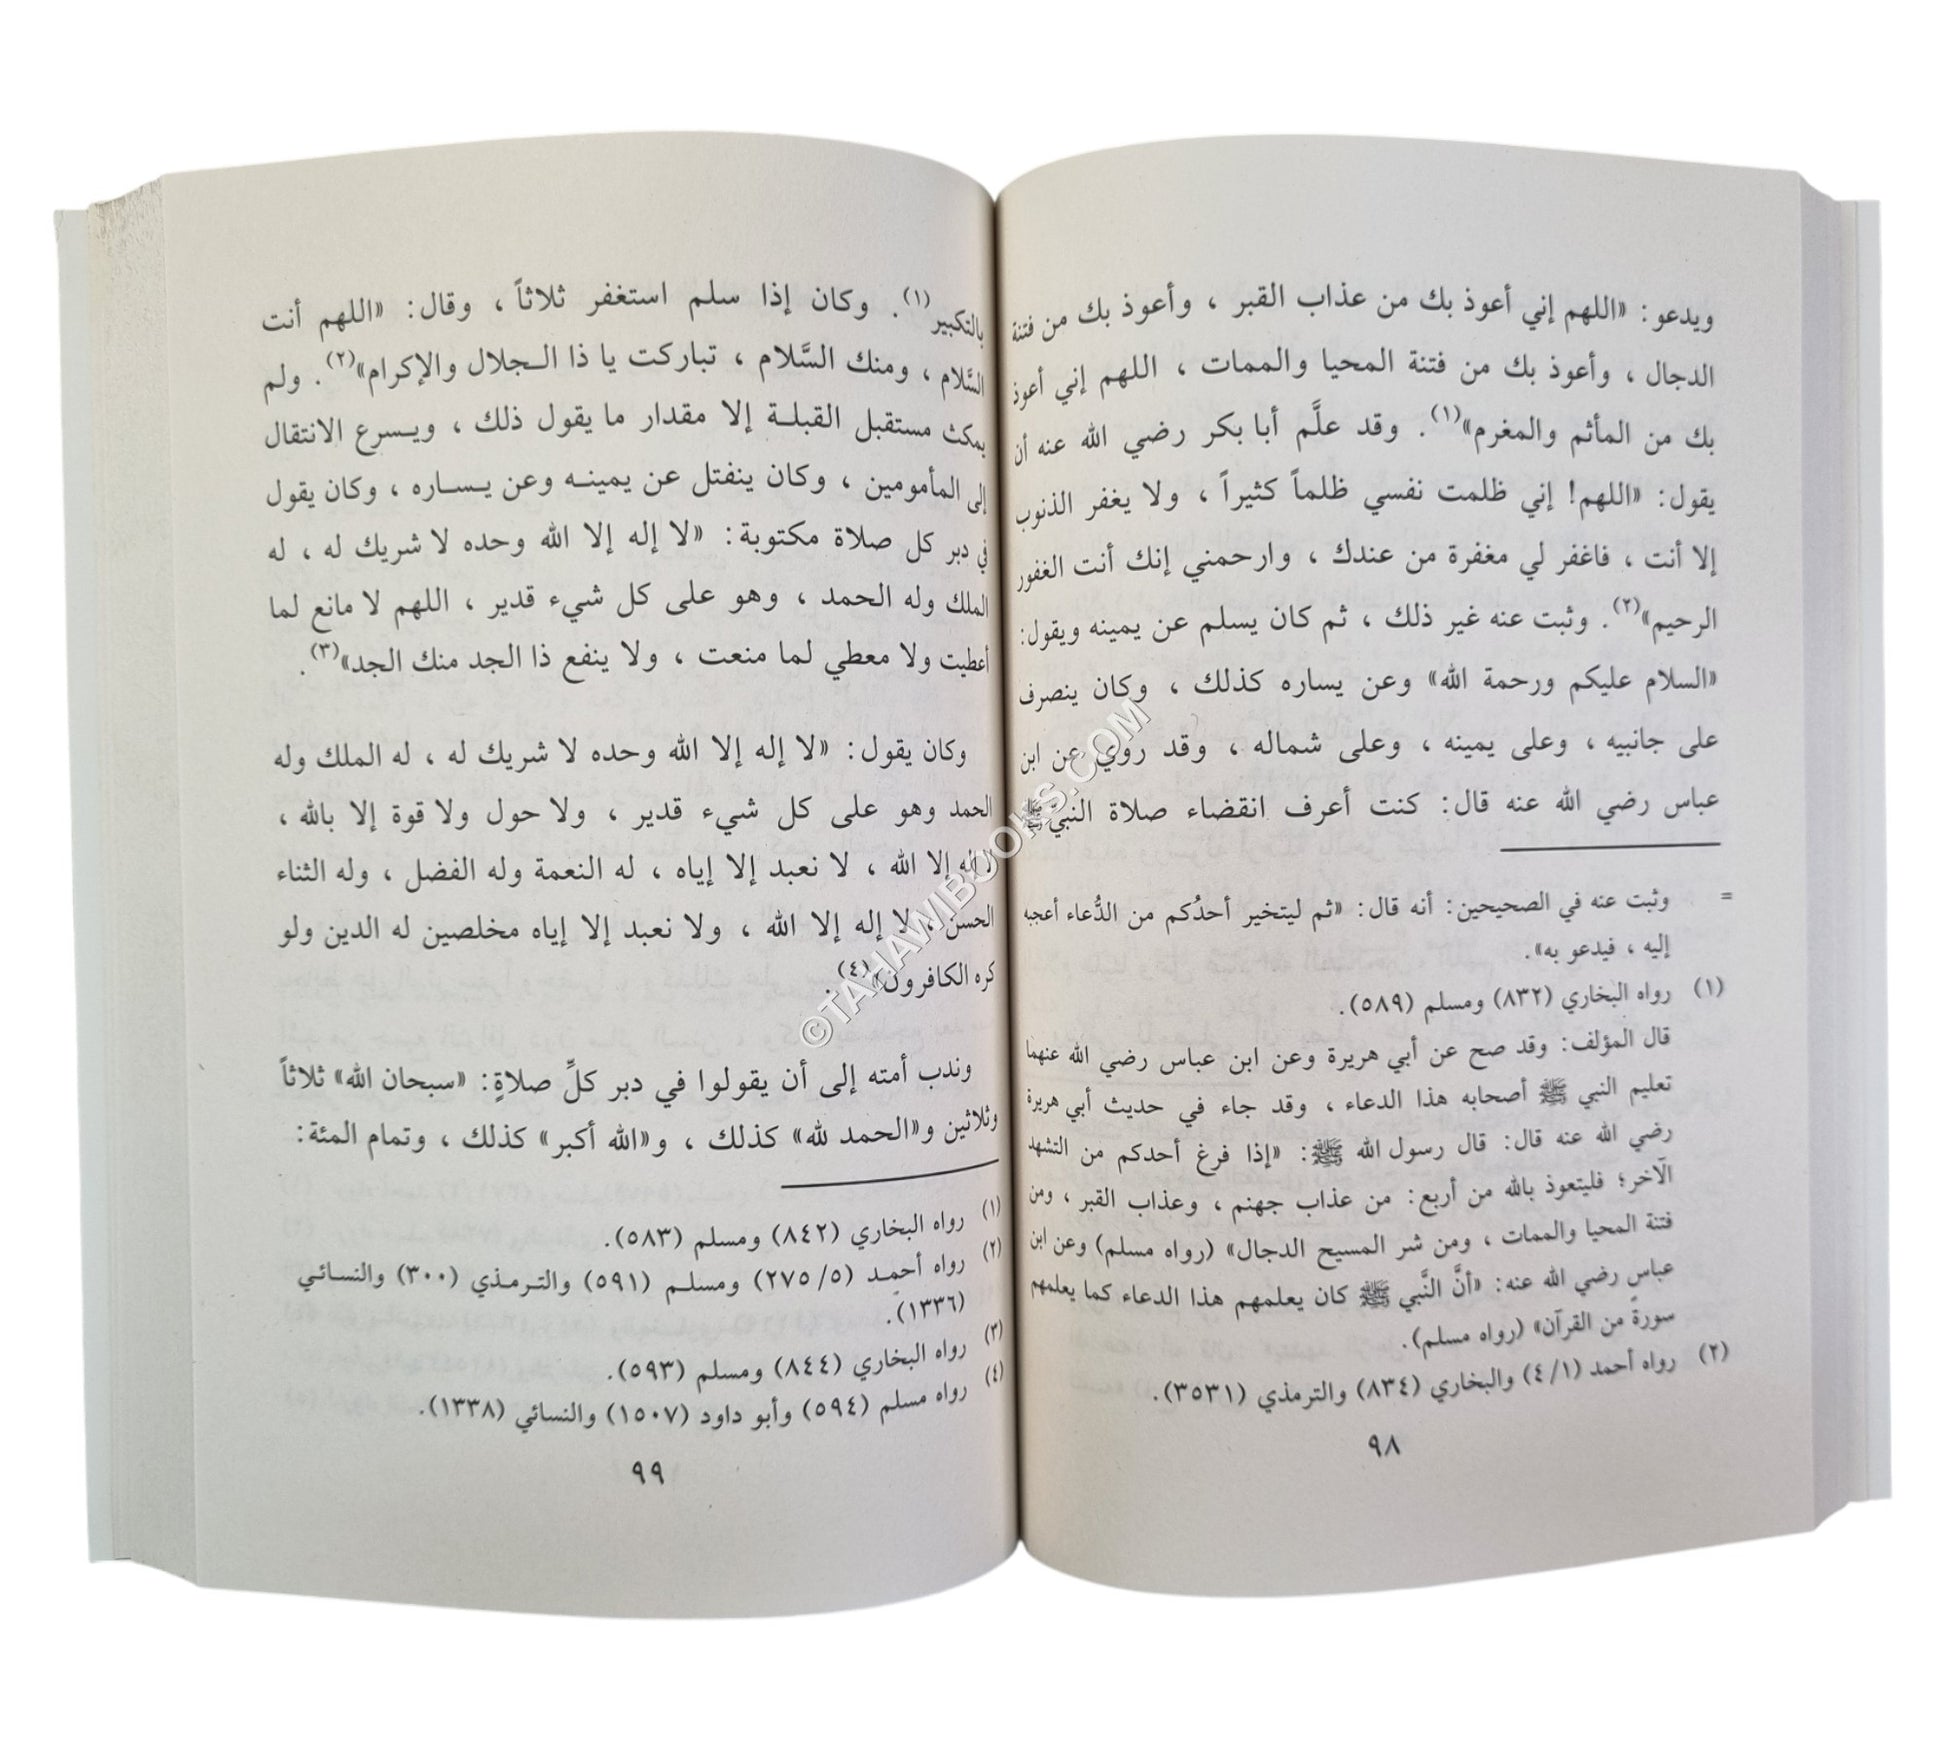 ويدعو: «اللهم إني أعوذ بك من عذاب القبر ، وأعوذ بك من فتنة
الدجال ، وأعوذ بك من فتنة المحيا والممات ، اللهم إني أعوذ
بك من المأثم والمغرم»(١). وقد علَّم أبا بكر رضي الله عنه أن
يقول: «اللهم! إني ظلمت نفسي ظلماً كثيراً ، ولا يغفر الذنوب
إلا أنت ، فاغفر لي مغفرة من عندك ، وارحمني إنك أنت الغفور
الرحيم»(٢). وثبت عنه غير ذلك ، ثم كان يسلم عن يمينه ويقول:
«السلام عليكم ورحمة الله» وعن يساره كذلك ، وكان ينصرف
على جانبيه ، وعلى يمينه ، وعلى شماله ، وقد روي عن ابن
عباس رضي الله عنه قال: كنت أعرف انقضاء صلاة النبيّ ﷺ
= وثبت عنه في الصحيحين: أنه قال: «ثم ليتخير أحدُكم من الدُّعاء أعجبه
إليه ، فيدعو به».
(١) رواه البخاري (٨٣٢) ومسلم (٥٨٩).
قال المؤلف: وقد صح عن أبي هريرة وعن ابن عباس رضي الله عنهما
تعليم النبي ﷺ أصحابه هذا الدعاء ، وقد جاء في حديث أبي هريرة
رضي الله عنه قال: قال رسول الله ﷺ: «إذا فرغ أحدكم من التشهد
الآخر؛ فليتعوذ بالله من أربع: من عذاب جهنم ، وعذاب القبر ، ومن
فتنة المحيا والممات ، ومن شر المسيح الدجال» (رواه مسلم) وعن ابن
عباسٍ رضي الله عنه: «أنَّ النَّبي ﷺ كان يعلمهم هذا الدعاء كما يعلمهم
سورةً من القرآن» (رواه مسلم).
(٢) رواه أحمد (٤/١) والبخاري (٨٣٤) والترمذي (٣٥٣١).
٩٨
بالتكبير(١). وكان إذا سلم استغفر ثلاثاً ، وقال: «اللهم أنت
السَّلام ، ومنك السَّلام ، تباركت يا ذا الـجلال والإكرام»(٢). ولم
يمكث مستقبل القبلـة إلا مقدار ما يقول ذلك ، ويـسرع الانتقال
إلى المأمومين ، وكان ينفتل عن يمينـه وعن يـسـاره ، وكان يقول
في دبر كل صلاة مكتوبة: «لا إله إلا الله وحده لا شريك له ، له
الملك وله الحمد ، وهو على كل شيء قدير ، اللهم لا مانع لما
أعطيت ولا معطي لما منعت ، ولا ينفع ذا الجد منك الجد»(٣).
وكان يقول: «لا إله إلا الله وحده لا شريك له ، له الملك وله
الحمد وهو على كل شيء قدير ، ولا حول ولا قوة إلا بالله ،
لا إله إلا الله ، لا نعبد إلا إياه ، له النعمة وله الفضل ، وله الثناء
الحسن ، لا إله إلا الله ، ولا نعبد إلا إياه مخلصين له الدين ولو
كره الكافرون»(٤).
وندب أمته إلى أن يقولوا في دبر كلِّ صلاةٍ: «سبحان الله» ثلاثاً
وثلاثين و«الحمد لله» كذلك ، و«الله أكبر» كذلك ، وتمام المئة:
(١) رواه البخاري (٨٤٢) ومسلم (٥٨٣).
(٢) رواه أحمـد (٢٧٥/٥) ومسلـم (٥٩١) والتـرمـذي (٣٠٠) والنسائـي
(١٣٣٦).
(٣) رواه البخاري (٨٤٤) ومسلم (٥٩٣).
(٤) رواه مسلم (٥٩٤) وأبو داود (١٥٠٧) والنسائي (١٣٣٨).
٩٩
©TAHAWIBOOKS.COM